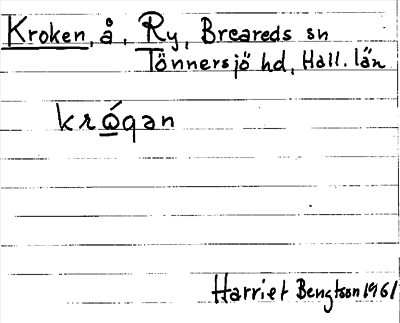 Kroken, å, Ry, Breareds sn
Tönnersjö hd, Hall. län
krógan
Harriet Bengtson 1961